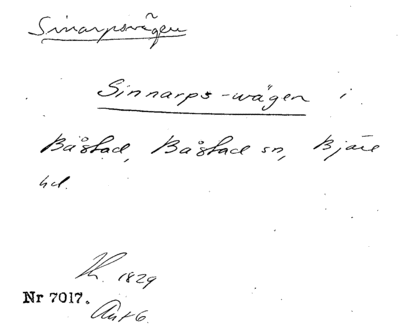 Sinarpsvägen
Sinnarps-wägen i
Båstad, Båstad sn, Bjäre
hd.
1829
Nr 7017.